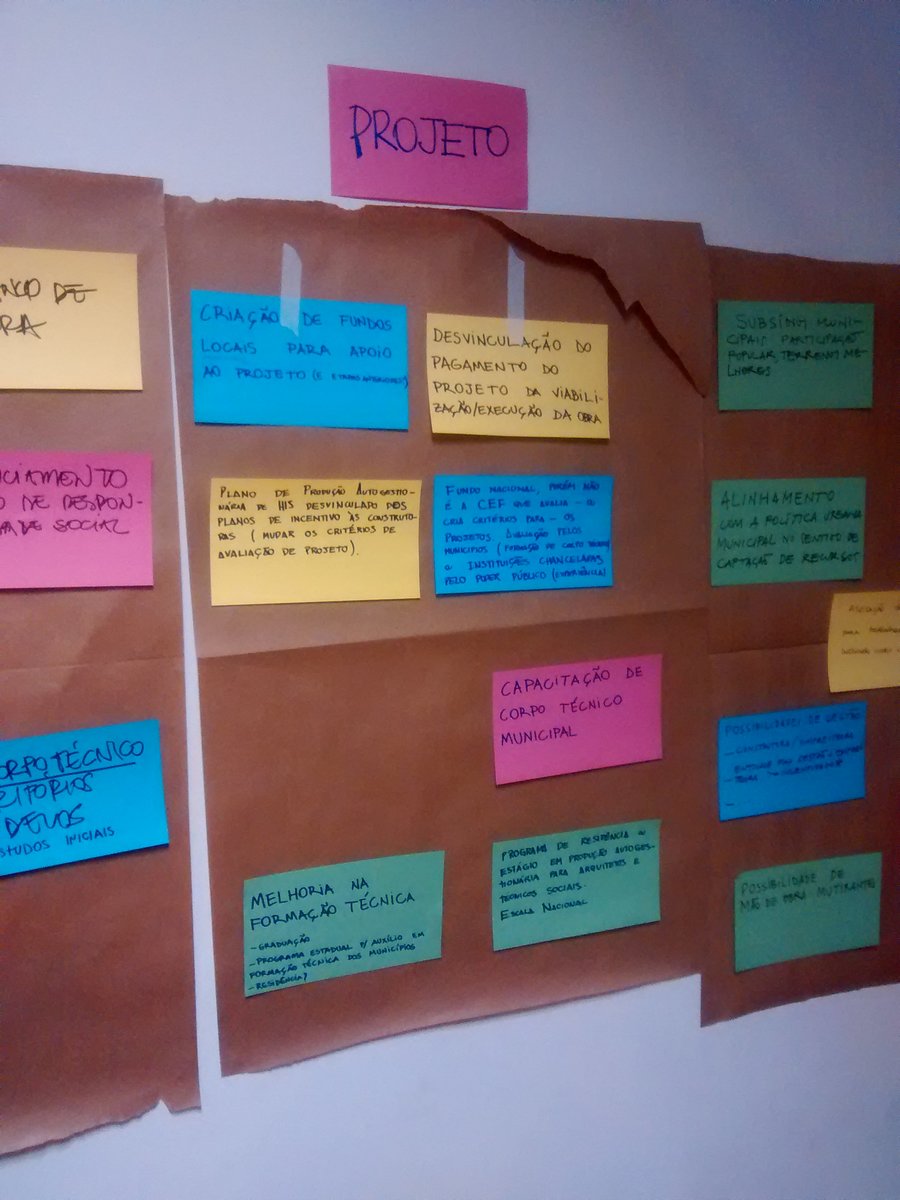 PROJETO
DE
RA
CIAMENTO
O DE RESPON-
SOCIAL
ORPO TÉCNICO
RITORIAS
STUDOS INICIAIS
CRIAÇÃO DE FUNDOS
LOCAIS PARA APOIO
AO PROJETO (E ETAPAS ANTERIORES)
DESVINCULAÇÃO DO
PAGAMENTO DO
PROJETO DA VIABILI-
ZAÇÃO/EXECUÇÃO DA OBRA
PLANO DE PRODUÇÃO AUTOGESTIO-
NÁRIA DE HIS DESVINCULADO DOS
PLANOS DE INCENTIVO ÀS CONSTRUTO-
RAS (MUDAR OS CRITÉRIOS DE
AVALIAÇÃO DE PROJETO).
FUNDO NACIONAL, PORÉM NÃO
É A CEF QUE AVALIA - OU
CRIA CRITÉRIOS PARA - OS
PROJETOS. AVALIAÇÃO PELOS
MUNICÍPIOS (FORMAÇÃO DE CORPO TÉCNICO)
OU INSTITUIÇÕES CHANCELADAS
PELO PODER PÚBLICO (EXPERIÊNCIA)
CAPACITAÇÃO DE
CORPO TÉCNICO
MUNICIPAL
MELHORIA NA
FORMAÇÃO TÉCNICA
- GRADUAÇÃO
- PROGRAMA ESTADUAL P/ AUXÍLIO EM
FORMAÇÃO TÉCNICA DOS MUNICÍPIOS
- RESIDÊNCIA?
PROGRAMA DE RESIDÊNCIA OU
ESTÁGIO EM PRODUÇÃO AUTOGES-
TIONÁRIA PARA ARQUITETOS E
TÉCNICOS SOCIAIS.
ESCALA NACIONAL
MUNI-
CIPAIS PARTICIPAÇÃO
POPULAR TERRENOS ME-
LHORES
ALINHAMENTO
COM A POLÍTICA URBANA
MUNICIPAL NO SENTIDO DE
CAPTAÇÃO DE RECURSOS
para
POSSIBILIDADES DE GESTÃO
POSSIBILIDADE DE
MÃO DE OBRA MUTIRANTES